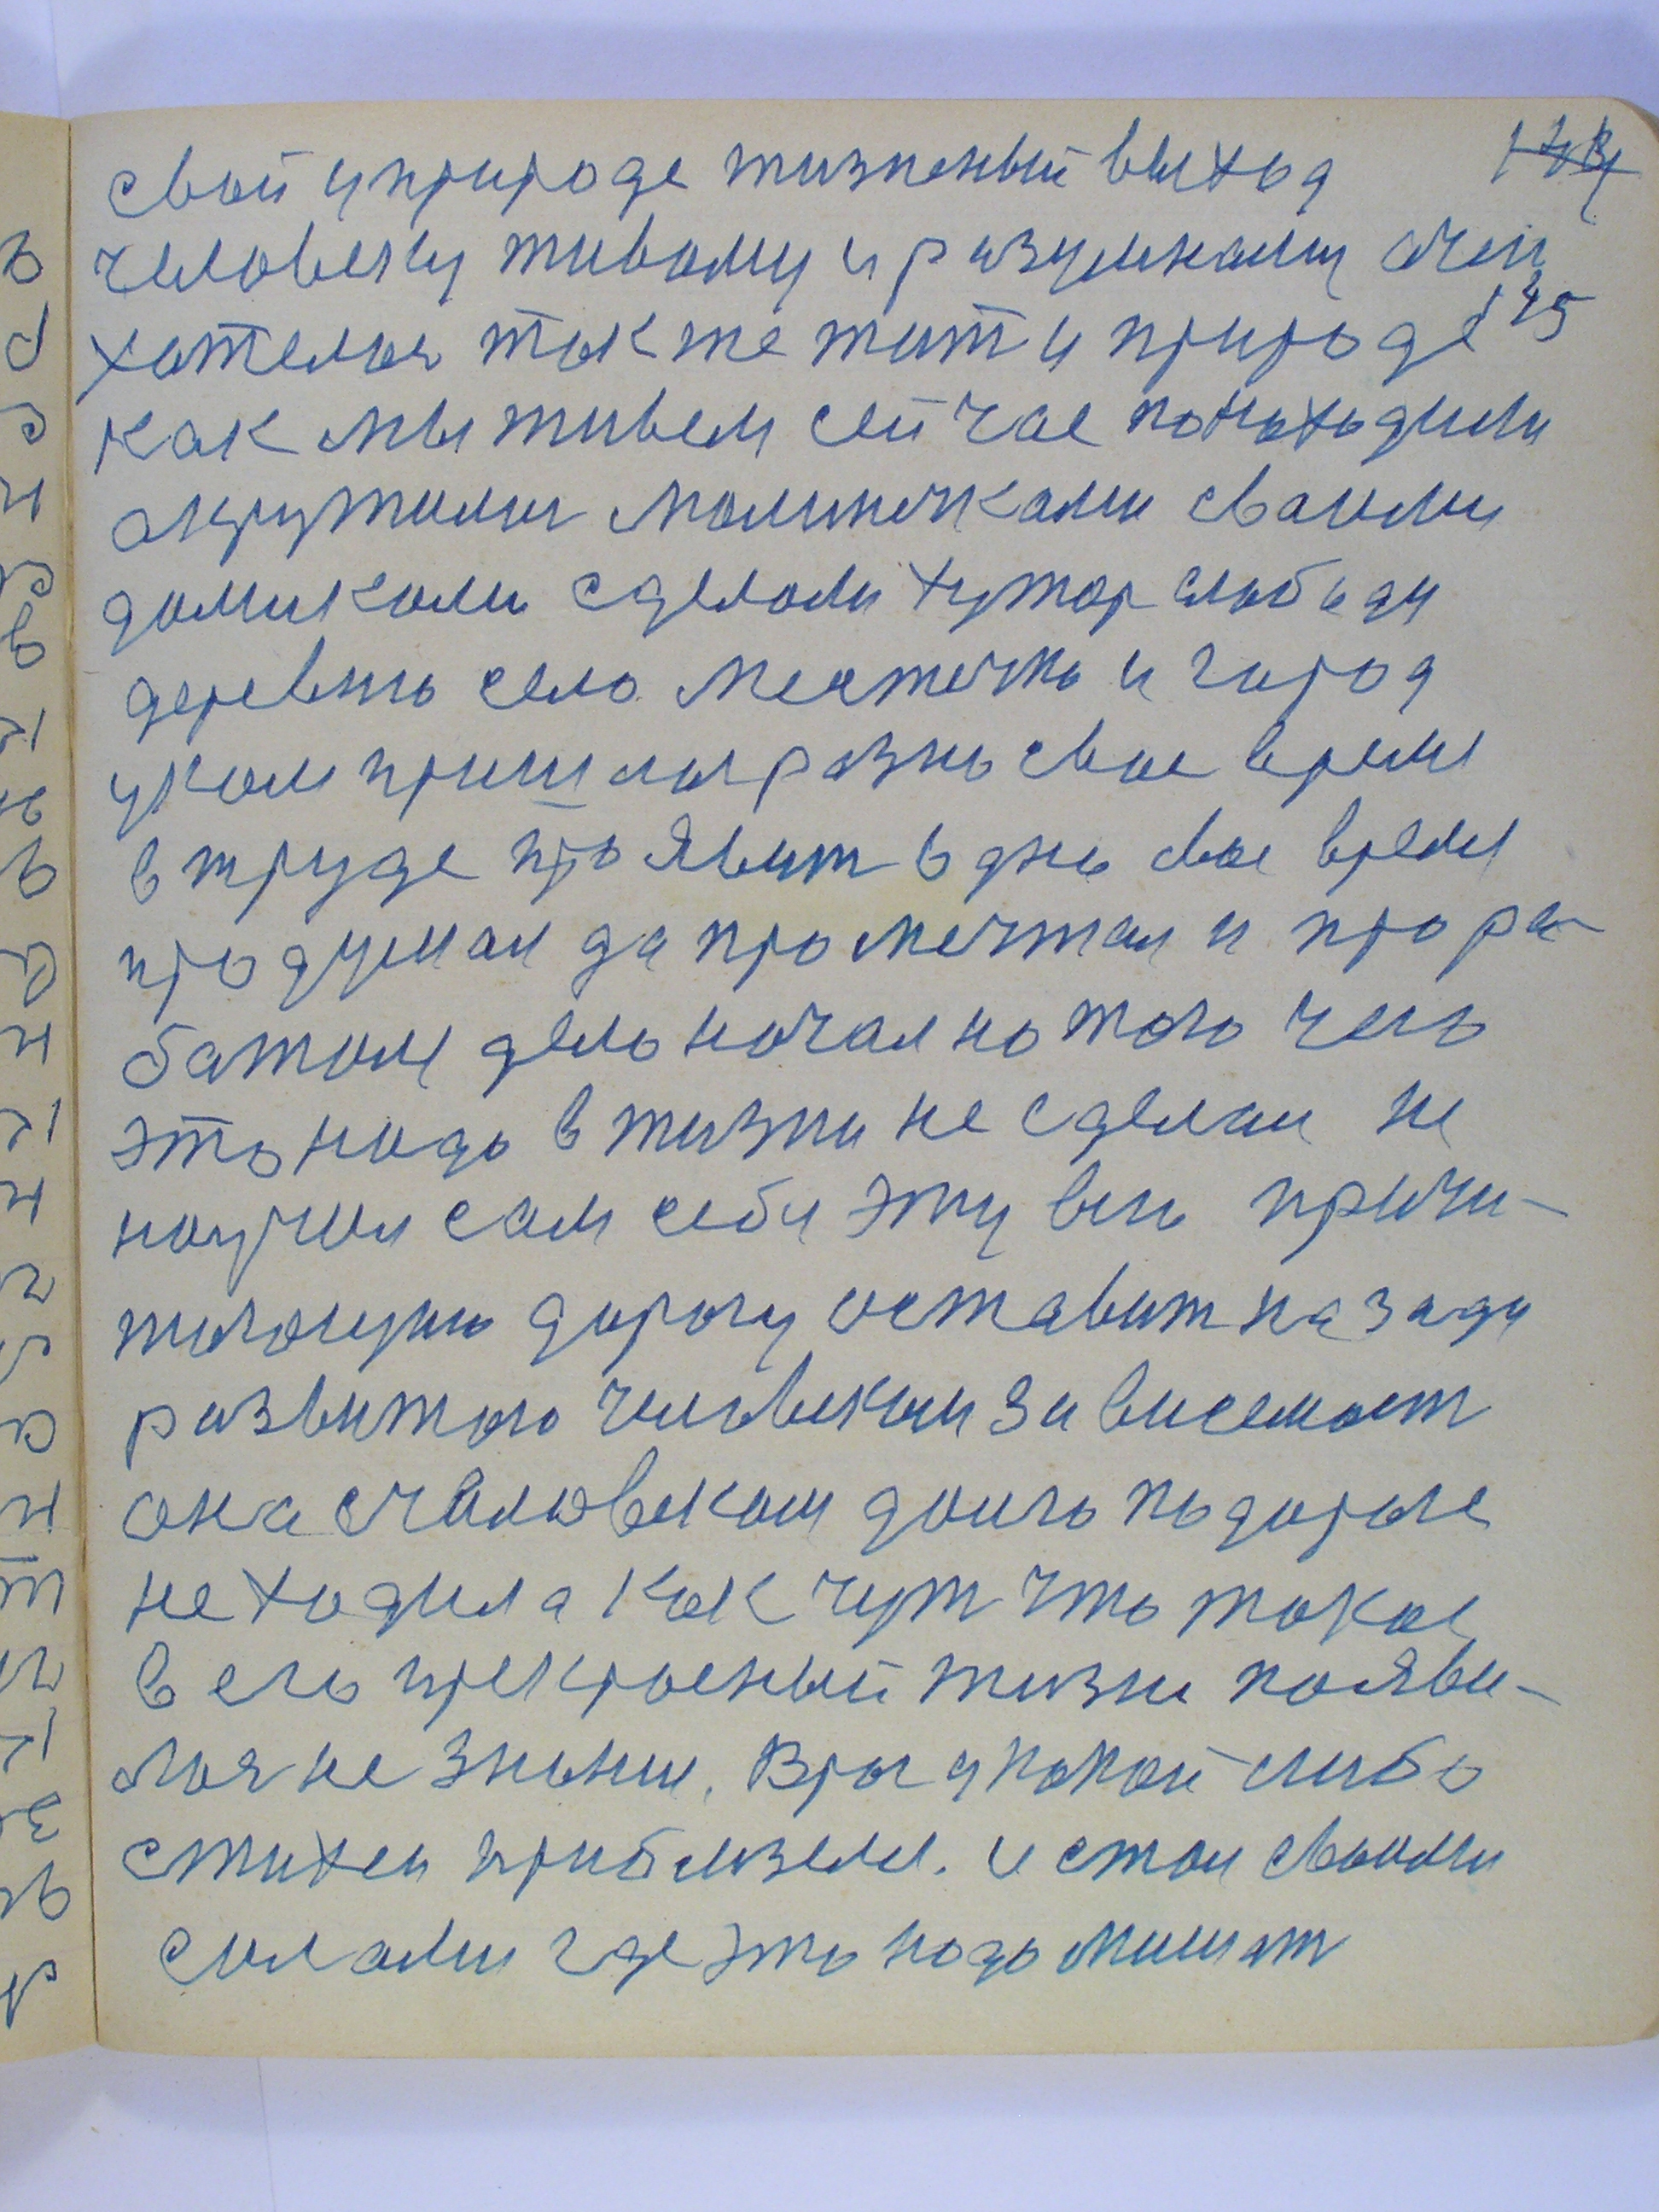 свой у природе жизненый выход
человеку живому и разумному очен
145
хотелся также жит у природе
как мы живем сейчас понаходили
окружили маличками своими
домиками сделали хутор слободу
деревню село местечко и город
у ком пришлось разно свое время
в труде проявит одно свое время
продумал да промечтал и прора-
ботал дело начал но того чего
это надо в жизни не сделал не
научил сам себя эту всю причи-
дорогу оставит назади
развитого человеком зависемост
она с человеком долго по дороге
не ходила как чут что такое
в его прекрасный жизни появи-
лося не знания. Враг у какой либо
стихеи приблизелся. и стал своими
силами где это надо мишат